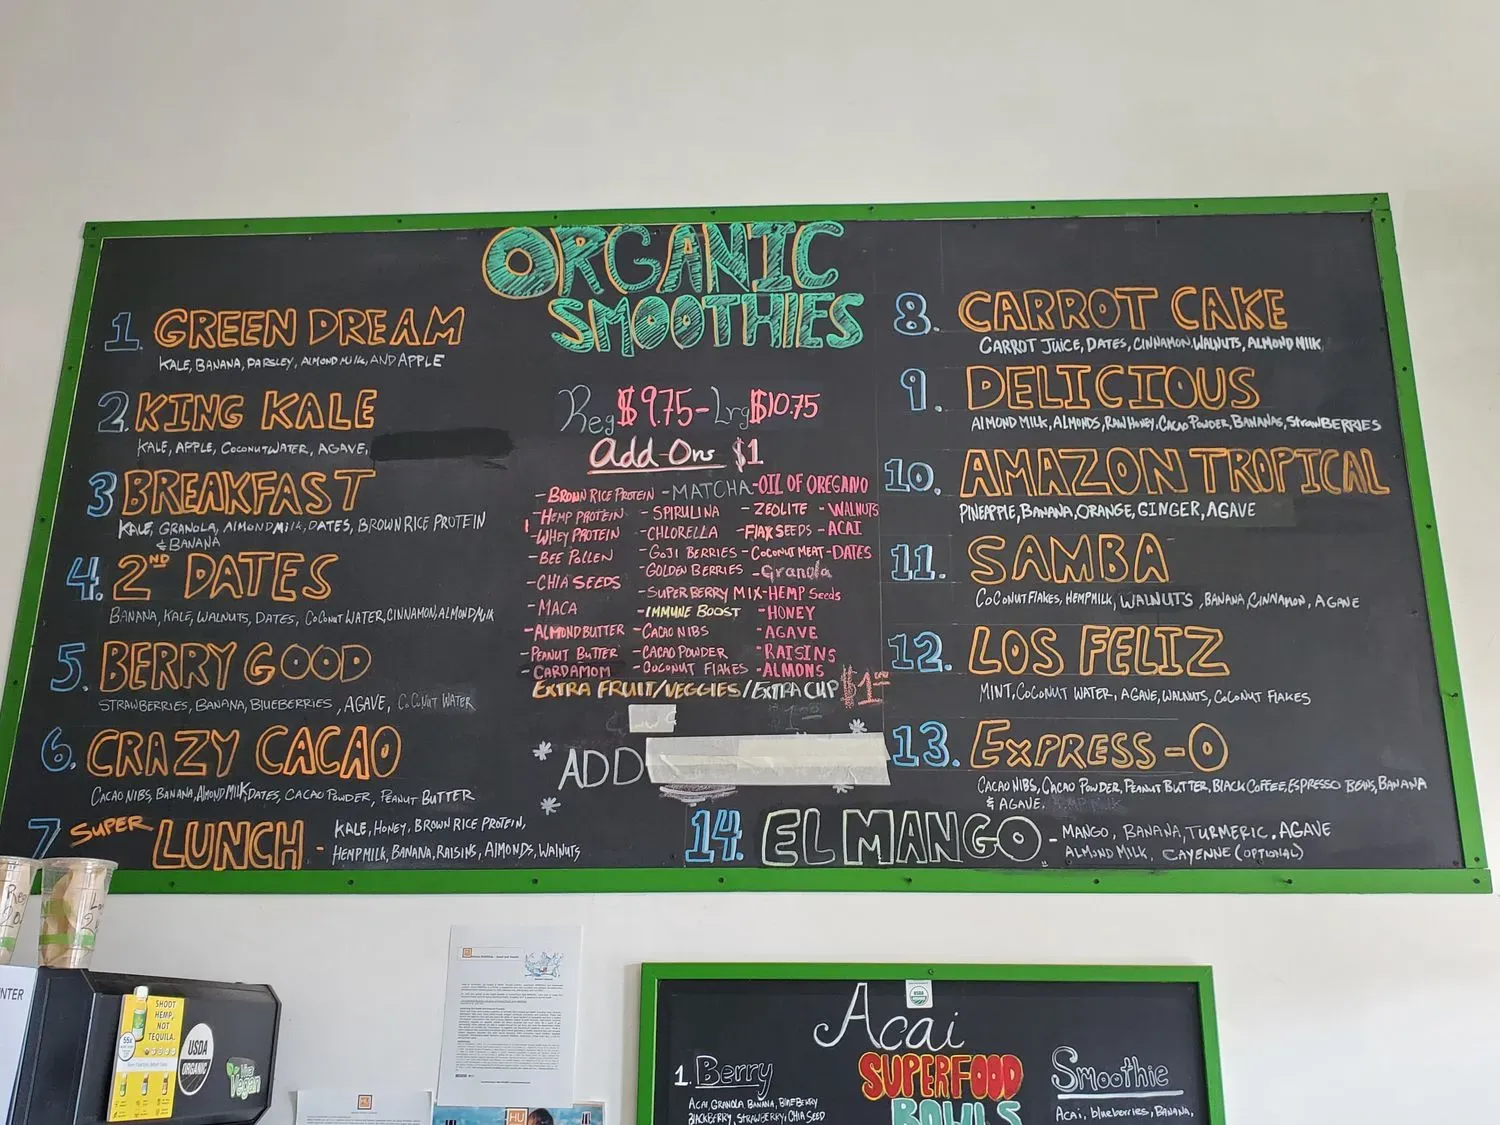 ORGANIC
SMOOTHIES
1. GREEN DREAM
KALE, BANANA, PARSLEY, ALMOND MILK, AND APPLE
2. KING KALE
KALE, APPLE, COCONUT WATER, AGAVE,
3 BREAKFAST
KALE, GRANOLA, ALMOND MILK, DATES, BROWN RICE PROTEIN
& BANANA
4. 2ND DATES
BANANA, KALE, WALNUTS, DATES, COCONUT WATER, CINNAMON, ALMOND MILK
5. BERRY GOOD
STRAWBERRIES, BANANA, BLUEBERRIES, AGAVE, COCONUT WATER
6. CRAZY CACAO
CACAO NIBS, BANANA, ALMOND MILK, DATES, CACAO POWDER, PEANUT BUTTER
7 SUPER LUNCH - KALE, HONEY, BROWN RICE PROTEIN,
HEMPMILK, BANANA, RAISINS, ALMONDS, WALNUTS
Reg $9.75 - Lrg $10.75
Add Ons $1
- BROWN RICE PROTEIN - MATCHA - OIL OF OREGANO
- HEMP PROTEIN - SPIRULINA - ZEOLITE - WALNUTS
- WHEY PROTEIN - CHLORELLA - FLAX SEEDS - ACAI
- BEE POLLEN - GOJI BERRIES - COCONUT MEAT - DATES
- CHIA SEEDS - GOLDEN BERRIES - Granola
- MACA - SUPERBERRY MIX - HEMP Seeds
- IMMUNE BOOST - HONEY
- ALMOND BUTTER - CACAO NIBS - AGAVE
- PEANUT BUTTER - CACAO POWDER - RAISINS
- CARDAMOM - COCONUT FLAKES - ALMONS
EXTRA FRUIT/VEGGIES/EXTRA CUP $1
* ADD
8. CARROT CAKE
CARROT JUICE, DATES, CINNAMON, WALNUTS, ALMOND MILK
9. DELICIOUS
ALMOND MILK, ALMONDS, RAW HONEY, CACAO POWDER, BANANAS, STRAWBERRIES
10. AMAZON TROPICAL
PINEAPPLE, BANANA, ORANGE, GINGER, AGAVE
11. SAMBA
COCONUT FLAKES, HEMPMILK, WALNUTS, BANANA, CINNAMON, AGAVE
12. LOS FELIZ
MINT, COCONUT WATER, AGAVE, WALNUTS, COCONUT FLAKES
13. EXPRESS-O
CACAO NIBS, CACAO POWDER, PEANUT BUTTER, BLACK COFFEE, ESPRESSO BEANS, BANANA
& AGAVE.
14. EL MANGO - MANGO, BANANA, TURMERIC, AGAVE
ALMOND MILK, CAYENNE (OPTIONAL)
Acai
SUPERFOOD
BOWLS
1. Berry
ACAI, GRANOLA, BANANA, BLUEBERRY
BLACKBERRY, STRAWBERRY, CHIA SEED
Smoothie
Acai, blueberries, BANANA,
SHOOT
HEMP,
NOT
TEQUILA.
USDA
ORGANIC
Vegan
HU